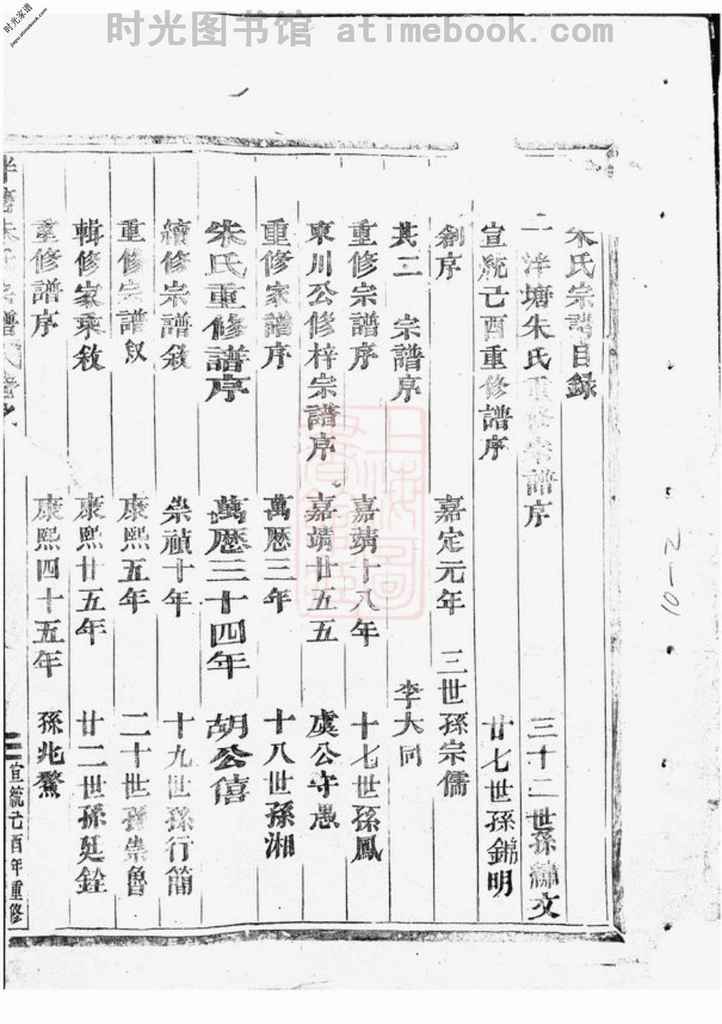 时光图书馆 atimebook.com
时光家谱
jiapu.atimebook.com
朱氏宗譜目錄
洋塘朱氏重修宗譜序 三十二世孫繡文
宣統己酉重修譜序 廿七世孫錦明
創序 嘉定元年 三世孫宗儒
其二 宗譜序 李大同
重修宗譜序 嘉靖十八年 十七世孫鳳
東川公修梓宗譜序 嘉靖廿五五 虞公守愚
重修家譜序 萬歷三年 十八世孫湘
朱氏重修譜序 萬歷三十四年 胡公僖
續修宗譜敘 崇禎十年 十九世孫行簡
重修宗譜敘 康熙五年 二十世孫崇魯
輯修家乘敘 康熙廿五年 廿二世孫廷銓
重修譜序 康熙四十五年 孫兆鰲
朱氏宗譜 宣統己酉年重修
2-01